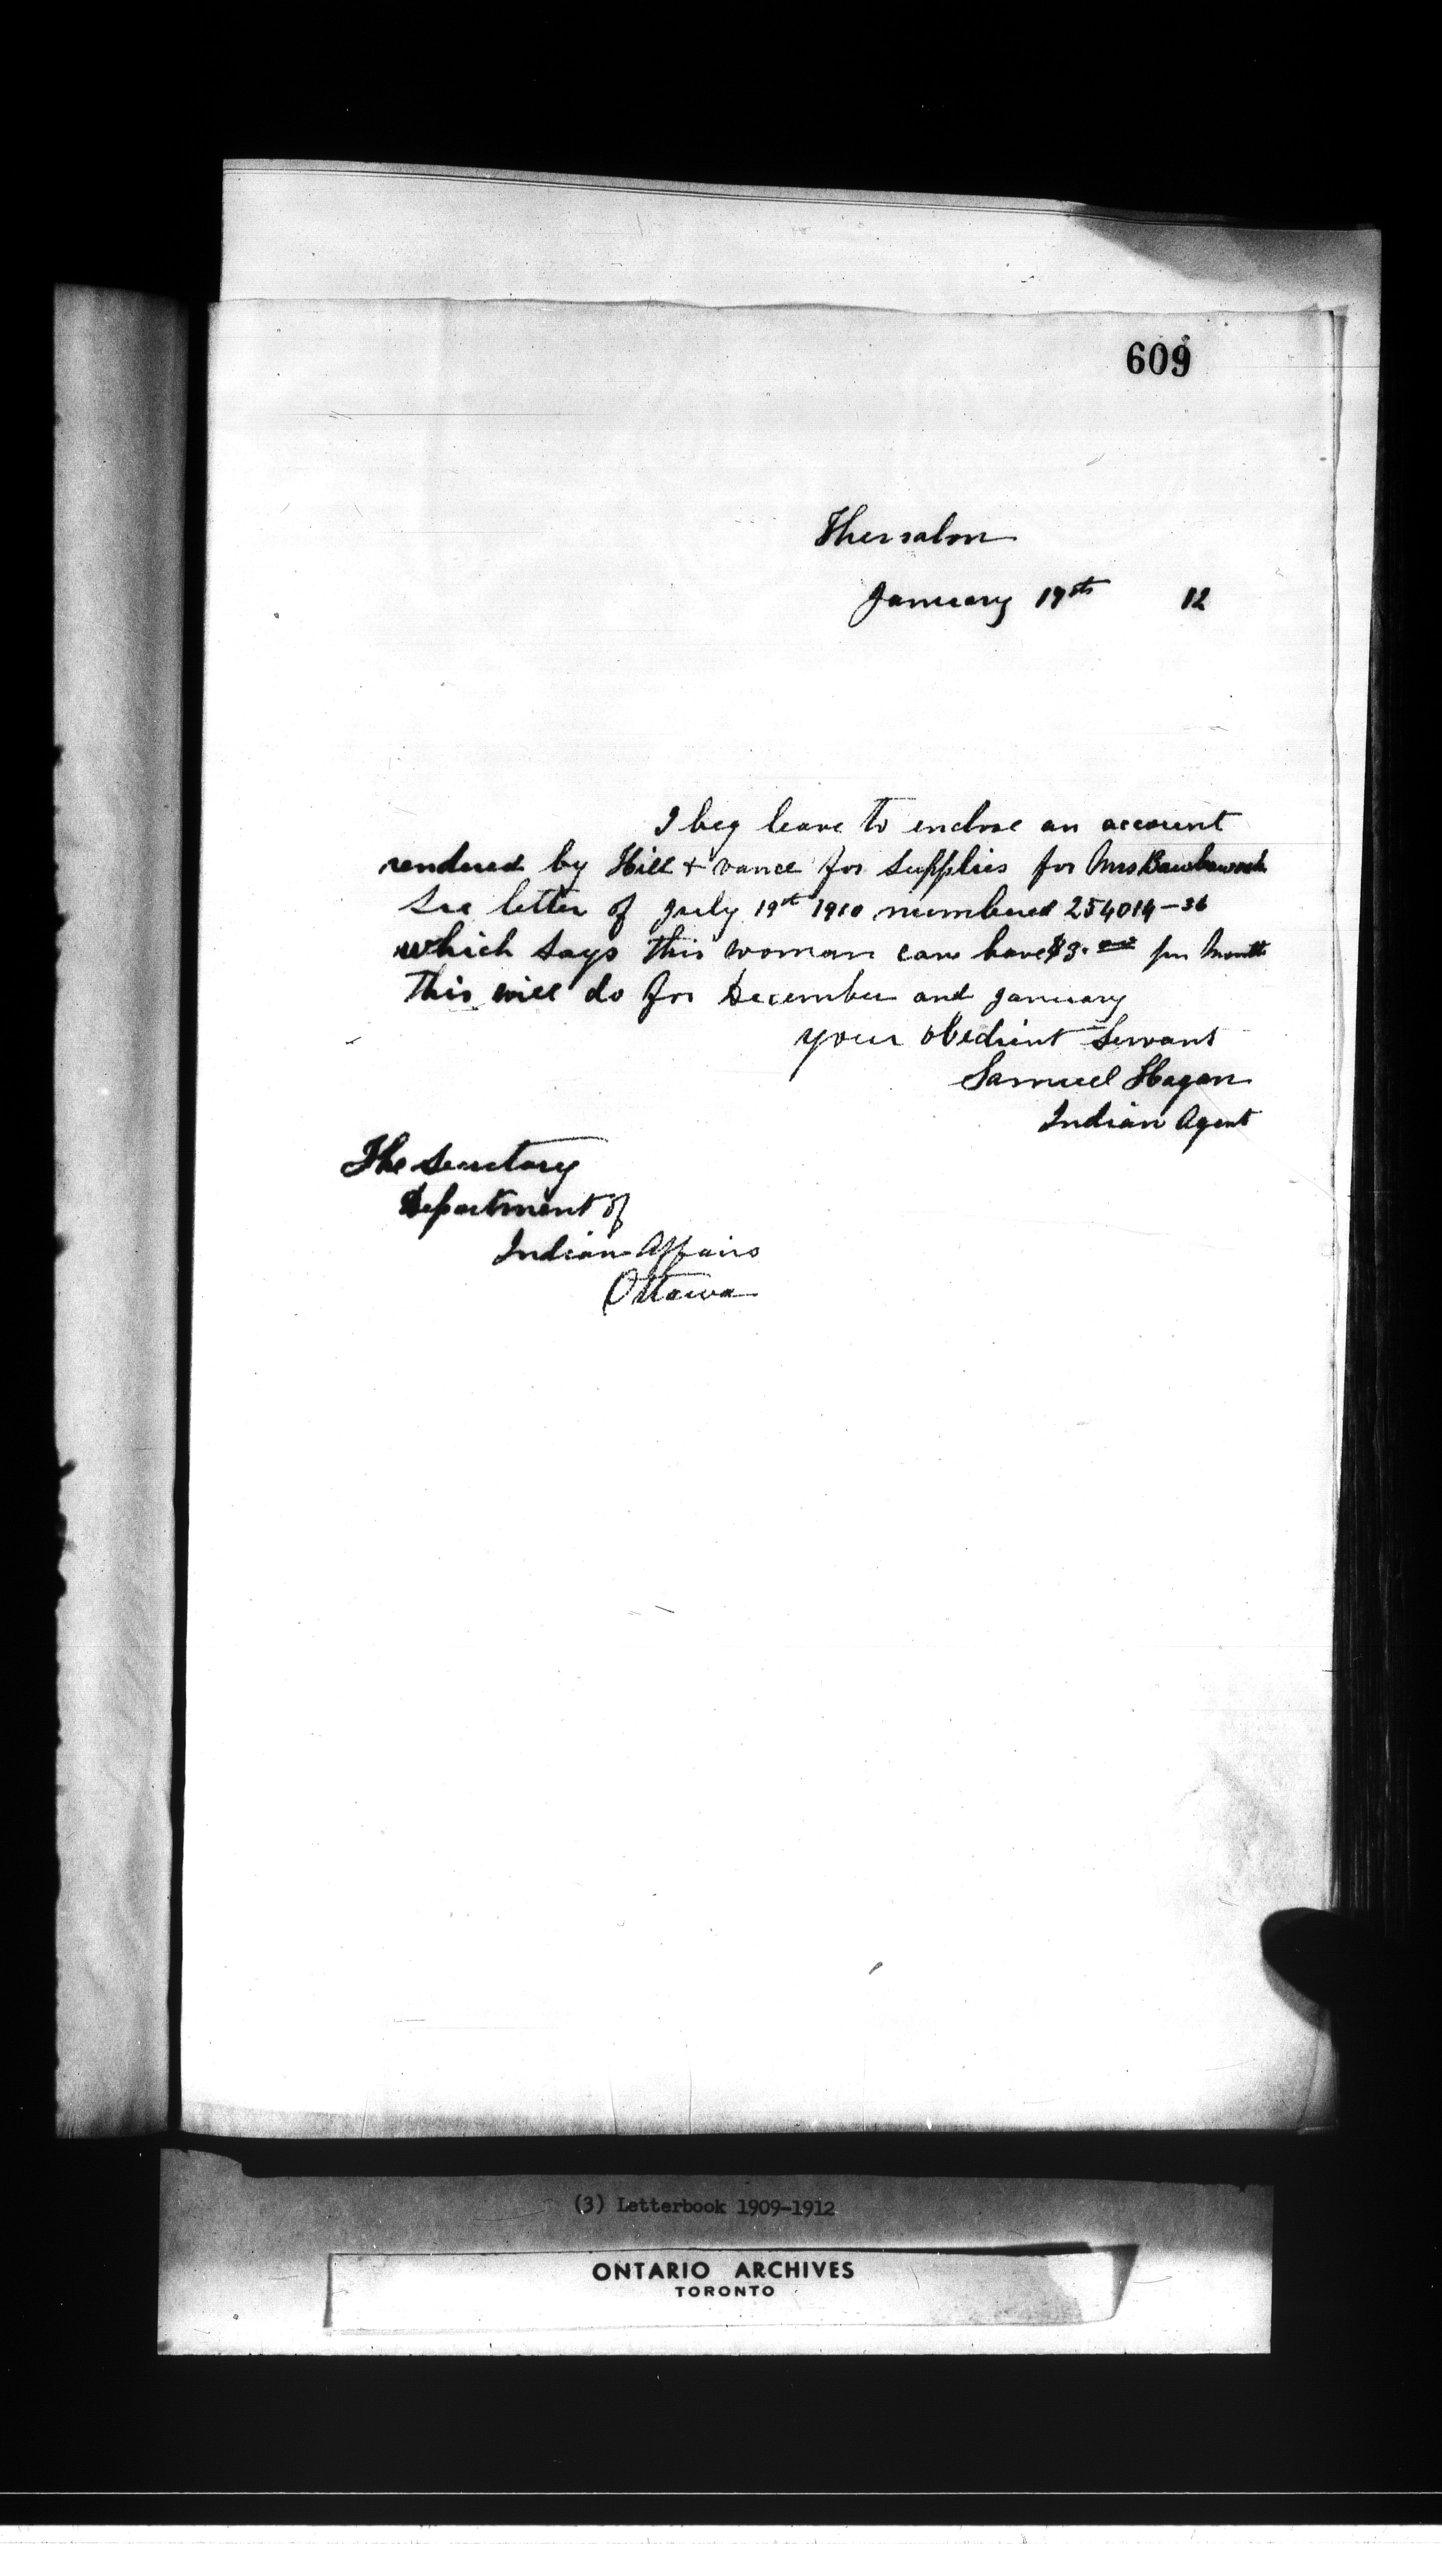 609
Thessalon
January 19th 12
I beg leave to enclose an account
rendered by Hill + vance for supplies for Mrs
See letter of July 19th 1910 numbered 254014-36
which says this woman can have $3.00 per Month
This will do for December and January
your obedient Servant
Samuel Hagan
Indian Agent
The Secretary
Department of
Indian Affairs
Ottawa
(3) Letterbook 1909-1912
ONTARIO ARCHIVES
TORONTO